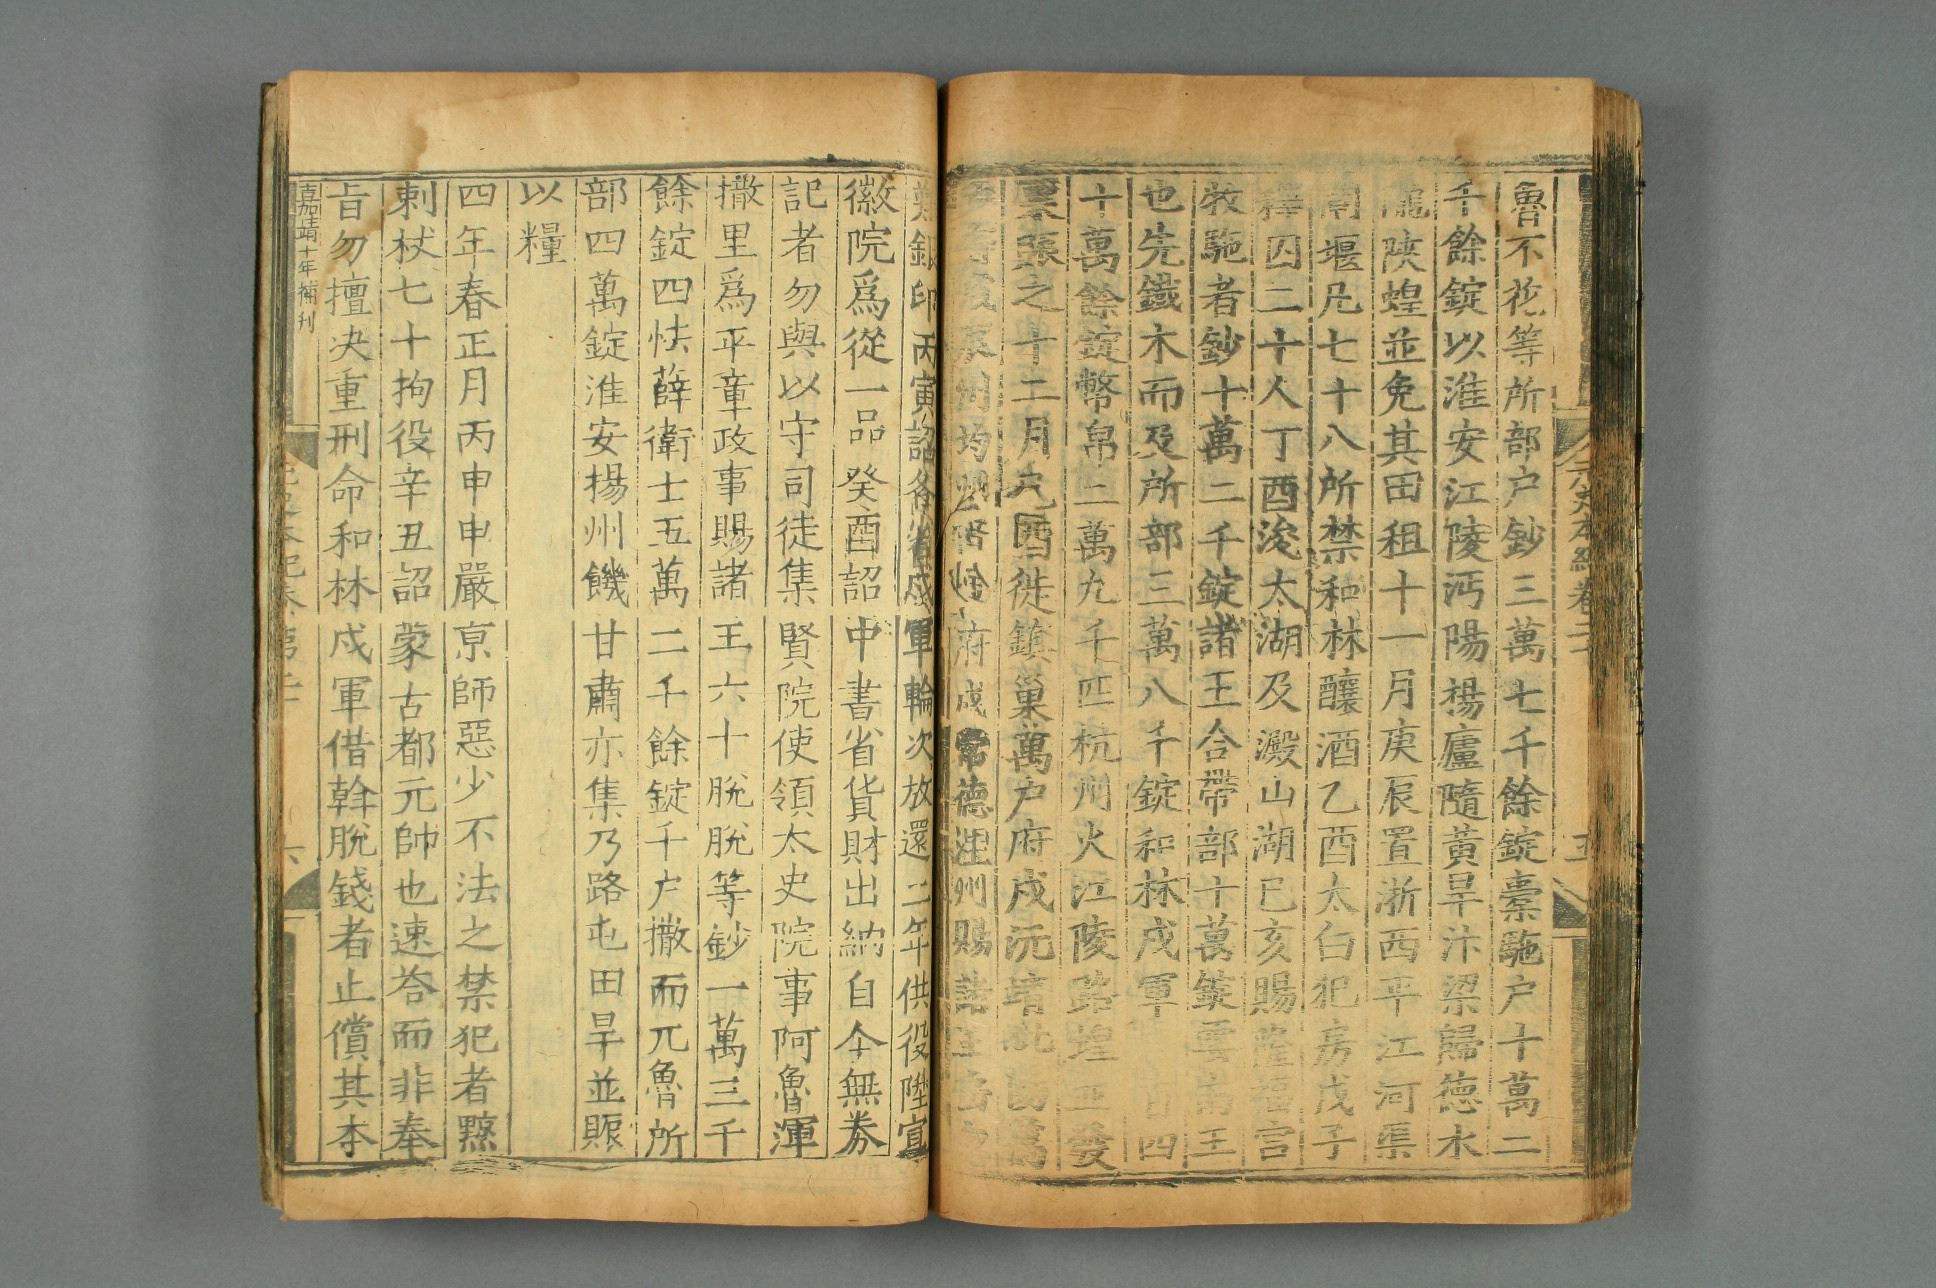 魯不花等所部户鈔三萬七千餘錠橐駞户十萬二
千餘錠以淮安江陵沔陽楊廬隨黃旱汴梁歸德水
隴陝蝗並免其田租十一月庚辰置浙西平江河渠
閘堰凡七十八所禁和林釀酒乙酉太白犯房戊子
釋囚二十人丁酉浚太湖及澱山湖已亥賜隆福宫
牧駞者鈔十萬二千錠諸王合帶部十萬錠
王
也先鐵木而及所部三萬八千錠和林戍軍
四
十萬餘錠幣帛二萬九千匹杭州火江陵路蝗並發
粟賑之十二月
酉徙鎮巢萬户府戍沅靖
州
府戍常德澧州賜諸王
銀印丙寅詔各省戍軍輪次放還二年供役陞宣
徽院爲從一品癸酉詔中書省貨財出納自今無券
記者勿與以守司徒集賢院使領太史院事阿魯渾
撒里爲平章政事賜諸王六十脫脫等鈔一萬三千
餘錠四怯薛衛士五萬二千餘錠千户撒而兀魯所
部四萬錠淮安揚州饑甘肅亦集乃路屯田旱並賑
以糧
四年春正月丙申申嚴京師惡少不法之禁犯者黥
刺杖七十拘役辛丑詔蒙古都元帥也速荅而非奉
旨勿擅决重刑命和林戍軍借斡脫錢者止償其本
嘉靖十年補刊
六